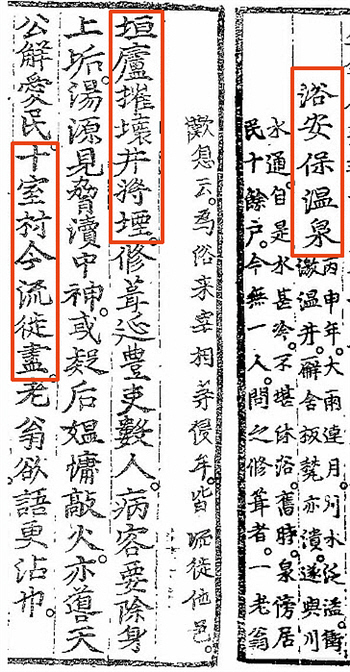 浴安保温泉
丙申年。大雨連月。川水泛溢。衝
激温井。廨舍扳甍亦潰。遂與川
水通。自是水甚冷。不堪休浴。舊時。泉傍居
民十餘戶。今無一人。問之修葺者。一老翁
歎息云。爲俗来宰相弄侵牟。皆流徙他邑。
垣廬摧壞井將堙。修葺延豊吏數人。病客要除身
上垢。湯源見瀆中神。或疑后媼慵敲火。亦噵天
公解愛民。十室村今流徙盡。老翁欲語更沾巾。